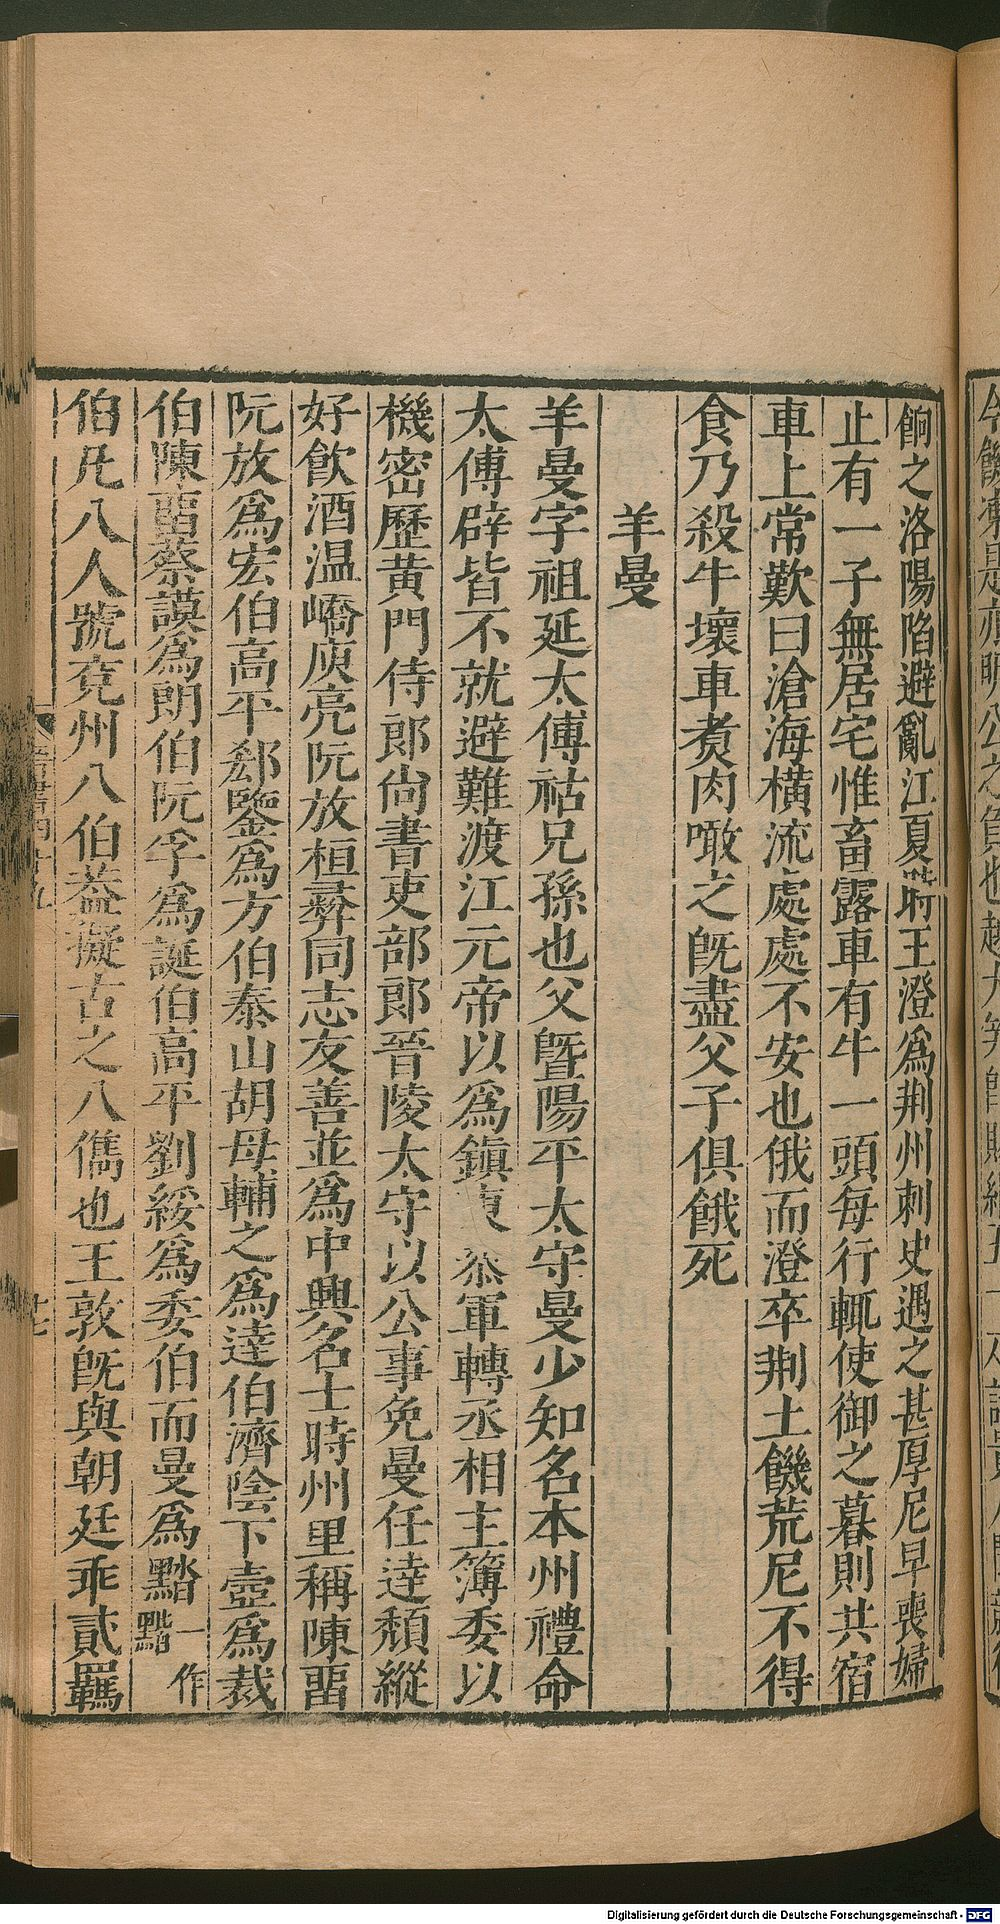 餉之洛陽陷避亂江夏時王澄爲荆州刺史遇之甚厚尼早喪婦
止有一子無居宅惟畜露車有牛一頭每行輒使御之暮則共宿
車上常歎曰滄海橫流處處不安也俄而澄卒荆土饑荒尼不得
食乃殺牛壞車煑肉噉之旣盡父子俱餓死
羊曼
羊曼字祖延太傅祜兄孫也父曁陽平太守曼少知名本州禮命
太傅辟皆不就避難渡江元帝以爲鎭東叅軍轉丞相主簿委以
機密歷黃門侍郎尙書吏部郎晉陵太守以公事免曼任達頹縱
好飮酒温嶠庾亮阮放桓彛同志友善並爲中興名士時州里稱陳畱
阮放爲宏伯高平郄鑒爲方伯泰山胡母輔之爲達伯濟陰卞壼爲裁
伯陳畱蔡謨爲朗伯阮孚爲誕伯高平劉綏爲委伯而曼爲黯一作䵬
伯凡八人號兗州八伯葢擬古之八儁也王敦旣與朝廷乖貳羈
晉書四十九
廿七
Digitalisierung gefördert durch die Deutsche Forschungsgemeinschaft - DFG